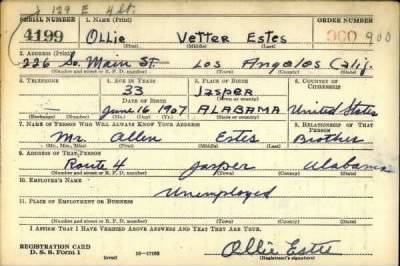 J 129 E Alt.
SERIAL NUMBER 1. NAME (Print) ORDER NUMBER
4199 Ollie Vetter Estes 900 900
(First) (Middle) (Last)
2. ADDRESS (Print)
226 So. Main St. Los Angeles Calif.
(Number and street or R. F. D. number) (Town) (County) (State)
3. TELEPHONE 4. AGE IN YEARS 5. PLACE OF BIRTH 6. COUNTRY OF CITIZENSHIP
33 Jasper
(Town or county)
DATE OF BIRTH
June 16 1907 ALABAMA United States
(Exchange) (Number) (Mo.) (Day) (Yr.) (State or country)
7. NAME OF PERSON WHO WILL ALWAYS KNOW YOUR ADDRESS 8. RELATIONSHIP OF THAT PERSON
Mr. Allen Estes Brother
(Mr., Mrs., Miss) (First) (Middle) (Last)
9. ADDRESS OF THAT PERSON
Route 4 Jasper Alabama
(Number and street or R. F. D. number) (Town) (County) (State)
10. EMPLOYER'S NAME
Unemployed
11. PLACE OF EMPLOYMENT OR BUSINESS
(Number and street or R. F. D. number) (Town) (County) (State)
I AFFIRM THAT I HAVE VERIFIED ABOVE ANSWERS AND THAT THEY ARE TRUE.
REGISTRATION CARD
D. S. S. Form 1 16—17105 Ollie Estes
(Registrant's signature)